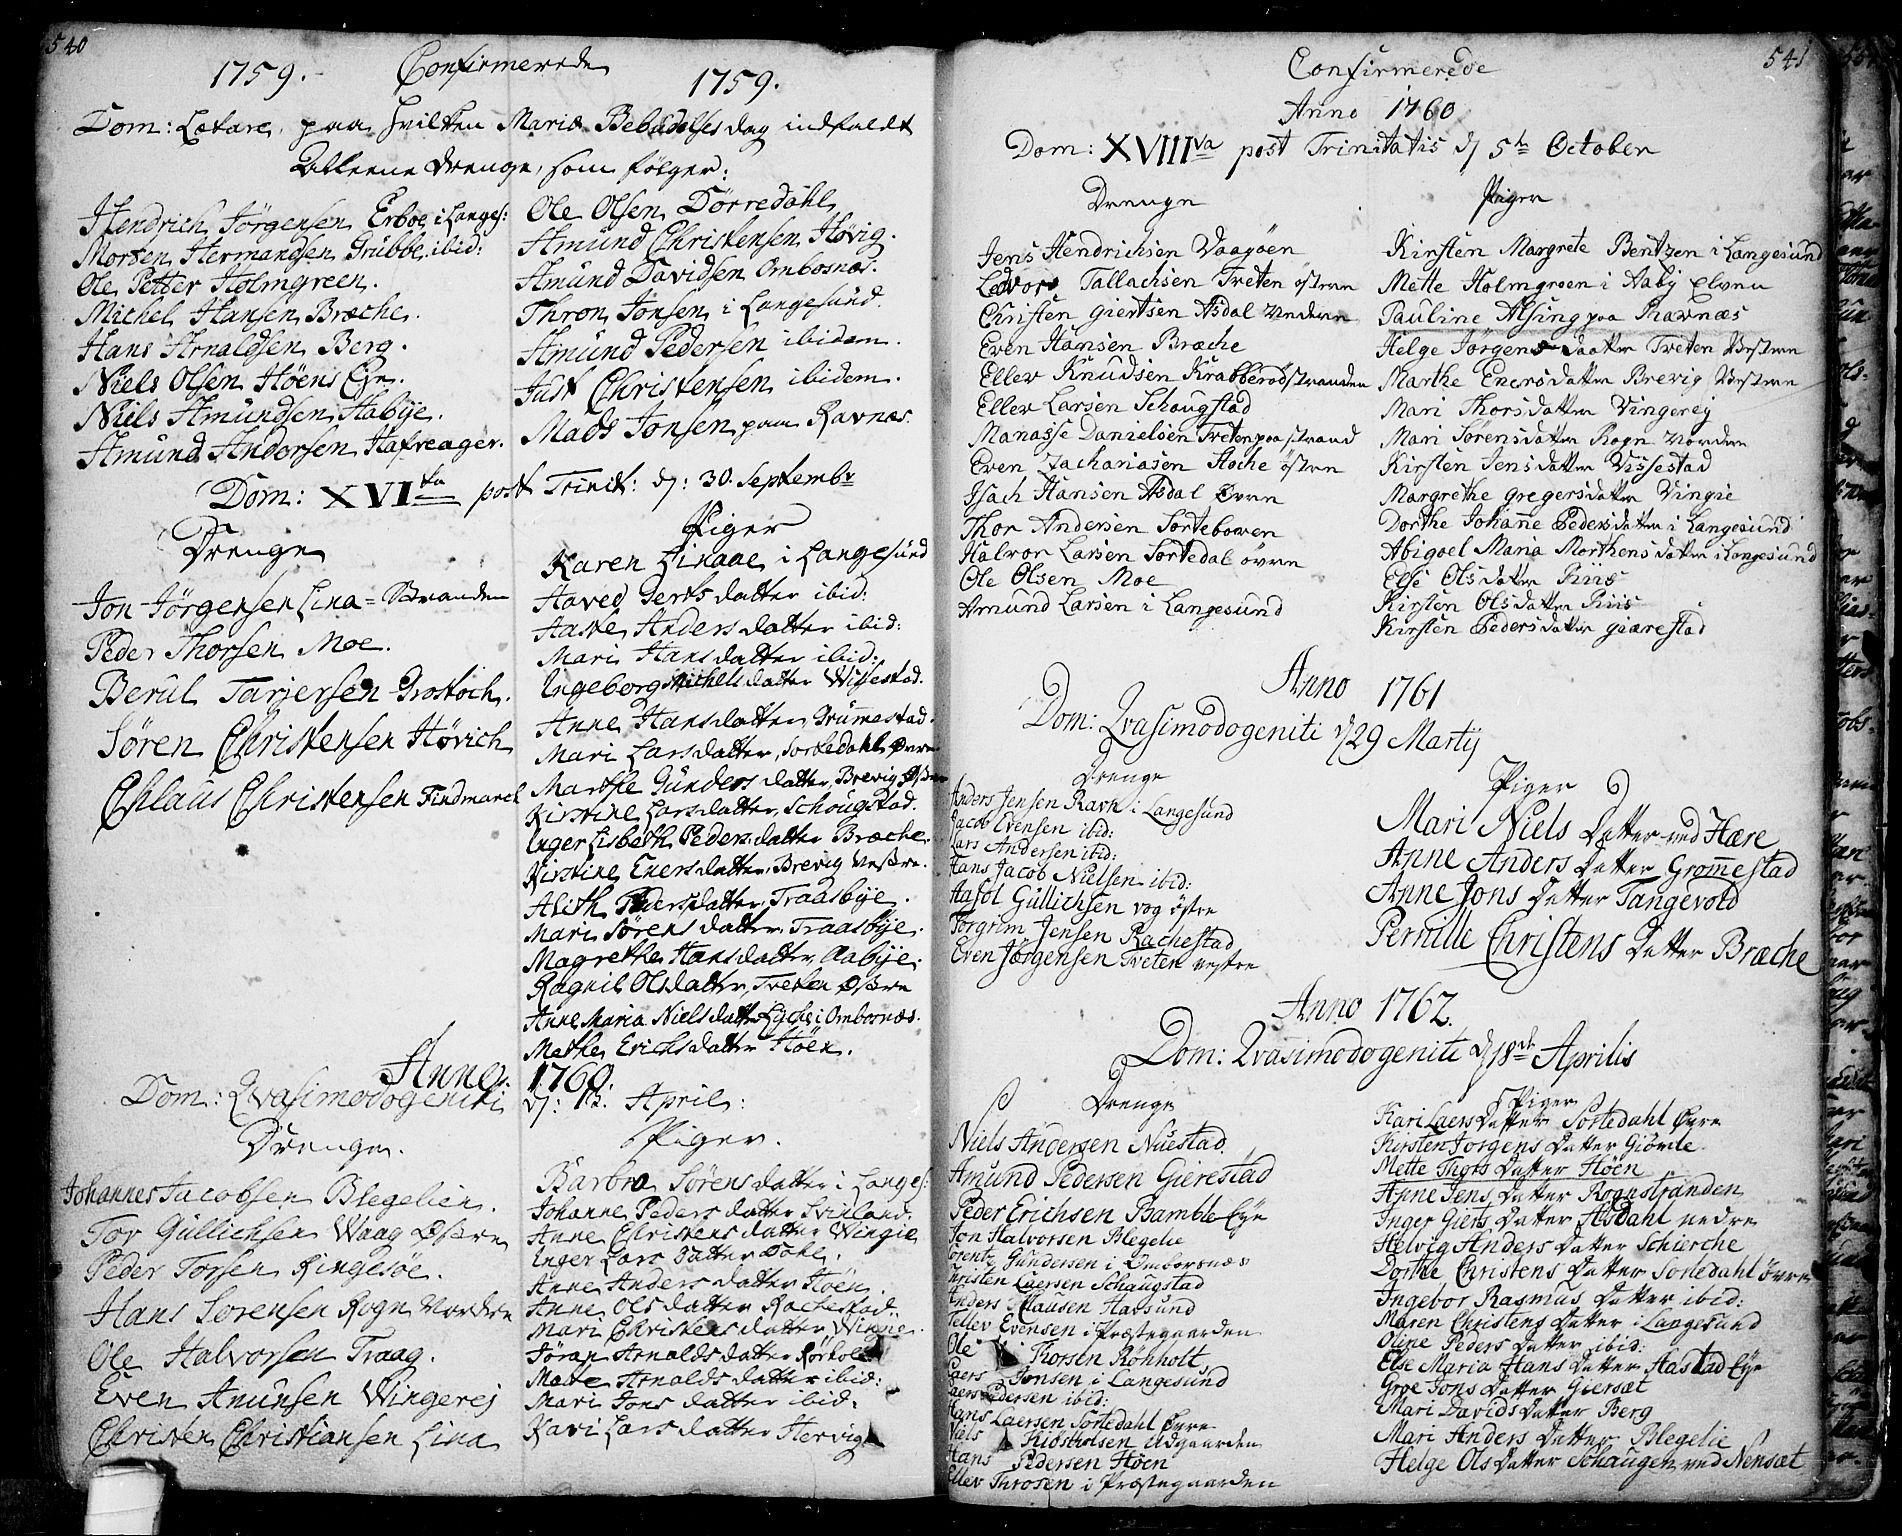 540
1759. Confirmerede 1759.
Dom: Lætare, paa hvilken Mariæ Bebudelses dag indfaldt
Alleene Drenge, som følger:
Hendrich Jørgensen Erboe i Langes:
Morten Hermandsen Grubbe, ibid:
Ole Petter Holmgreen.
Michel Hansen Bræche.
Hans Arnaldsen Berg.
Niels Olsen Høens Eje.
Niels Amundsen Habije.
Amund Andersen Hafreager.
Ole Olsen Dørredahl
Amund Christensen Høvig.
Amund Davidsen Ombosnæs.
Thron Jonsen i Langesund.
Amund Pedersen ibidem.
Just Christensen ibidem.
Mads Jonsen paa Ravnæs.
Dom: XVI ta post Trinit: d: 30. Septembr
Drenge
Jon Jørgensen Lina = Stranden
Peder Thorsen Moe.
Berul Tarjersen Grostoch.
Søren Christensen Høvich
Chlaus Christensen Findmarch
Piger
Karen Linaae i Langesund
Aaved Gertsdatter ibid:
Aaste Andersdatter ibid:
Mari Hansdatter ibid:
Ingeborg Michelsdatter Wissestad.
Anne Hansdatter Grummestad.
Mari Larsdatter, Sortedahl Øvre
Marthe Gundersdatter, Brevig Østre
Kirstine Larsdatter, Schougstad.
Inger Lisbeth Peders:datter Bræche.
Kirstine Enersdatter, Brevig Vestre.
Alith Pedersdatter, Traasbye.
Mari Sørensdatter, Traasbije.
Magrethe Hansdatter Aabije.
Ragnil Olsdatter, Treten Østre
Anne Maria Nielsdatter Lyche i Ombosnæs.
Methe Erichsdatter Høen.
Anno 1760.
Dom: Qvasimodogeniti d: 13. April:
Drenge.
Johannes Jacobsen Blegelien.
Tor Gullichsen Waag Østre
Peder Torsen Ringesøe.
Hans Sørensen Rogn Nordre
Ole Halvorsen Traag.
Even Anunsen Wingerej
Christen Christiansen Lina
Piger.
Barbra Sørensdatter i Langes:
Johanne Pedersdatter Svinland.
Anne Christensdatter Wingie
Inger Larsdatter Tohe.
Anne Andersdatter Høen.
Anne Olsdatter Rachestad.
Mari Christensdatter Winne.
Jøran Arnoldsdatter Rørhol
Mette Arnoldsdatter ibid:
Mari Jonsdatter ibid:
Kari Larsdatter Hervig
541
Confirmerede
Anno 1760
Dom: XVIII va post Trinitatis d 5te October
Drenge
Jens Hendrichsen Vaagøen
Ledvor Tallachsen Treten østre
Christen Giertsen Asdal nedre
Even Hansen Bræche
Ellev Knudsen Krabberødstranden
Ellev Larsen Schougstad
Manasse Danielsen Treten paa strand
Even Zachariasen Stoche østre
Isach Hansen Asdal Øvre
Thor Andersen Sortebowen
Halvor Larsen Sortedal øvre
Ole Olsen Moe
Amund Larsen i Langesund
Piger
Kirsten Margrete Bentzen i Langesund
Mette Holmgroen i Aaby Elven
Pauline Alsing paa Ravnæs
Helge Jørgens datter Treten Vestre
Marthe Enersdatter Brevig Vestre
Mari Thorsdatter Vingerej
Mari Sørensdatter Rogn Nordre
Kirsten Jensdatter Vissestad
Margrethe Gregersdatter Vingie
Dorthe Johanne Pedersdatter i Langesund
Abigael Maria Morthensdatter i Langesund
Else Olsdatter Riis
Kirsten Olsdatter Riis
Kirsten Pedersdatter Giærestad
Anno 1761
Dom: Qvasimodogeniti d 29 Martij
Drenge
Anders Jensen Ravn i Langesund
Jacob Evensen ibid:
Lars Andersen ibid:
Hans Jacob Nielsen ibid:
Aasol Gullichsen vog østre
Torgrim Jensen Rachestad
Even Jørgensen Treten vestre
Piger
Mari Niels Datter ved Hære
Anne Anders Datter Grommestad
Anne Jons Datter Tangevold
Pernille Christens Datter Bræche
Anno 1762.
Dom: Qvasimodogeniti d 18de Aprilis
Drenge
Niels Andersen Nuestad.
Amund Pedersen Gierestad
Peder Erichsen Bamble Eje
Jon Halvorsen Blegelie
Sorentz Gundersen i Omborsnæs
Christen Laersen Schaugstad
Anders Clausen Havsund
Tellev Evensen i Præstegaarden
Ole Thorsen Rønholt
Laers Jonsen i Langesund
Laers Pedersen ibid:
Hans Laersen Sortedahl Øvre
Niels Kiostolsen Udgaarden
Hans Pedersen Høen
Ellev Throsen i Præstegaarden
Piger
Kari Laers Datter Sortedahl Øvre
Kirsten Jorgens Datter Giømle
Mette Thors Datter Høen
Anne Jens Datter Rognstranden
Inger Gierts Datter Asdahl nedre
Helvig Anders Datter Schierche
Dorthe Christens Datter Sortedahl øvre
Ingebor Rasmus Datter ibid:
Maren Christens Datter i Langesund
Oline Peders Datter ibid:
Else Maria Hans Datter Aastad Eje
Groe Jons Datter Giersæt
Mari Davids Datter Berg
Mari Anders Datter Blegelie
Helge Ols Datter Schaugen ved Nensæt